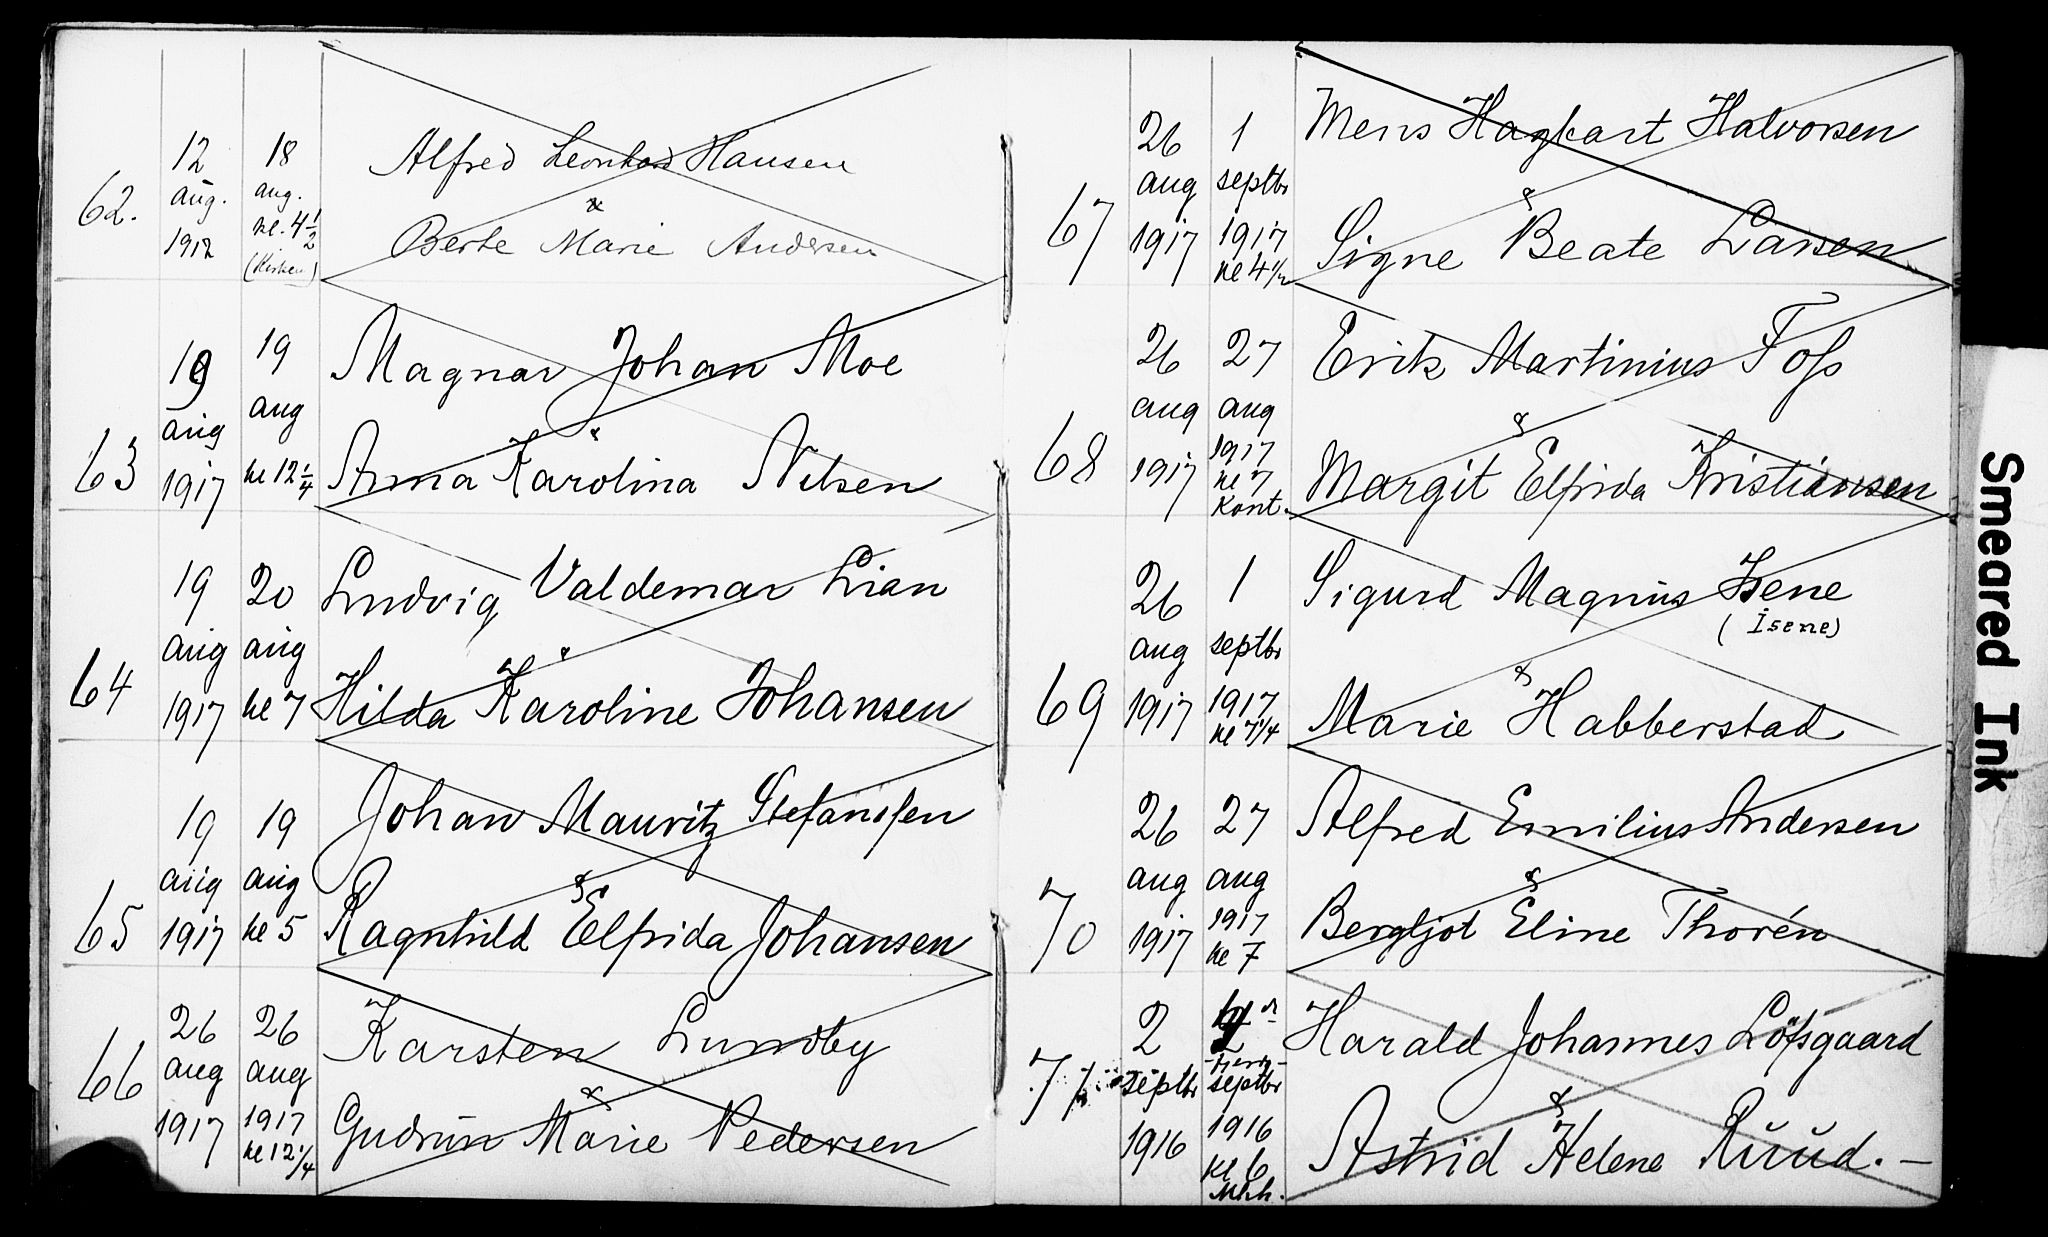 62.
12
aug.
1912
18
aug.
kl. 4 1/2
(Kirken)
Alfred Leonhard Hansen
&
Berte Marie Andersen
63
19
aug
1917
19
aug
kl 12 1/4
Magnar Johan Moe
&
Anna Karolina Nilsen
64
19
aug
1917
20
aug
kl 7
Ludvig Valdemar Lian
&
Hilda Karoline Johansen
65
19
aug
1917
19
aug
kl 5
Johan Mauritz Stefanssen
&
Ragnhild Elfrida Johansen
66
26
aug
1917
26
aug
1917
kl 12 1/4
Karsten Lundby
&
Gudrun Marie Pedersen
67
26
aug
1917
1
septbr
1917
kl 4 1/2
Mens Hagbart Halvorsen
&
Signe Beate Larsen
68
26
aug
1917
27
aug
1917
kl 7
Kont.
Erik Martinius Foss
&
Margit Elfrida Kristiansen
69
26
aug
1917
1
septbr
1917
kl 7 1/4
Sigurd Magnus Isene
(Isene)
&
Marie Habberstad
70
26
aug
1917
27
aug
1917
kl 7
Alfred Emilius Andersen
&
Bergljot Eline Thorén
71
2
septbr
1916
septbr
1916
kl 6
Harald Johannes Löfsgaard
&
Astrid Helene Ruud. —
Smeared Ink